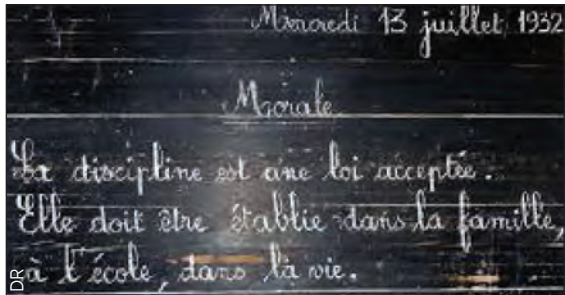 Mercredi 13 juillet 1932
Morale
La discipline est une loi acceptée.
Elle doit être établie dans la famille,
à l'école, dans la vie.
DR